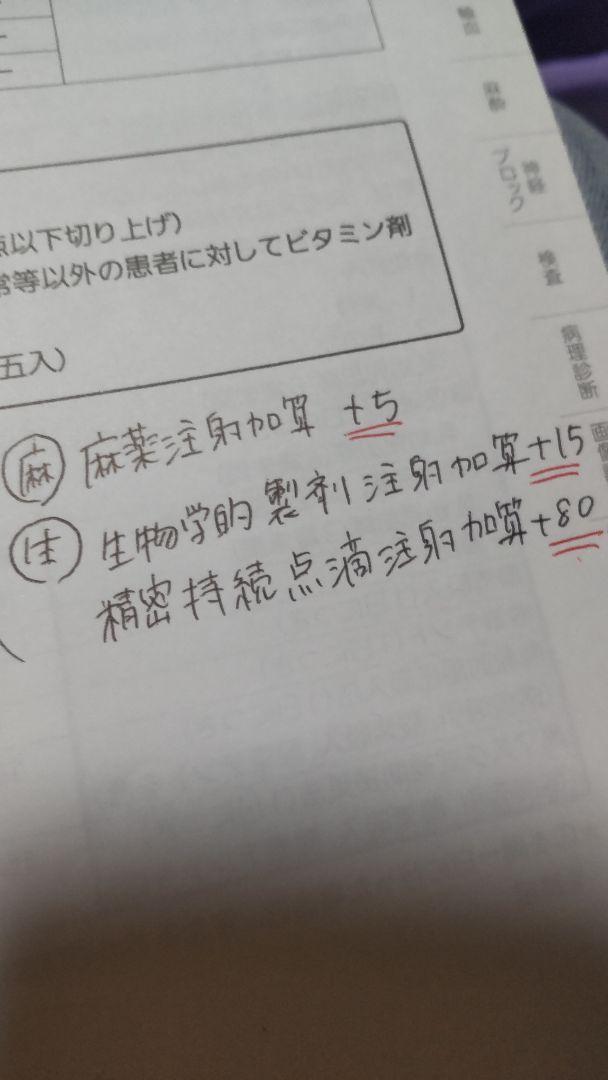 点以下切り上げ)
常等以外の患者に対してビタミン剤
五入)
麻 麻薬注射加算 +5
生 生物学的製剤注射加算+15
精密持続点滴注射加算+80
輸血
麻酔
神経ブロック
検査
病理診断
画像